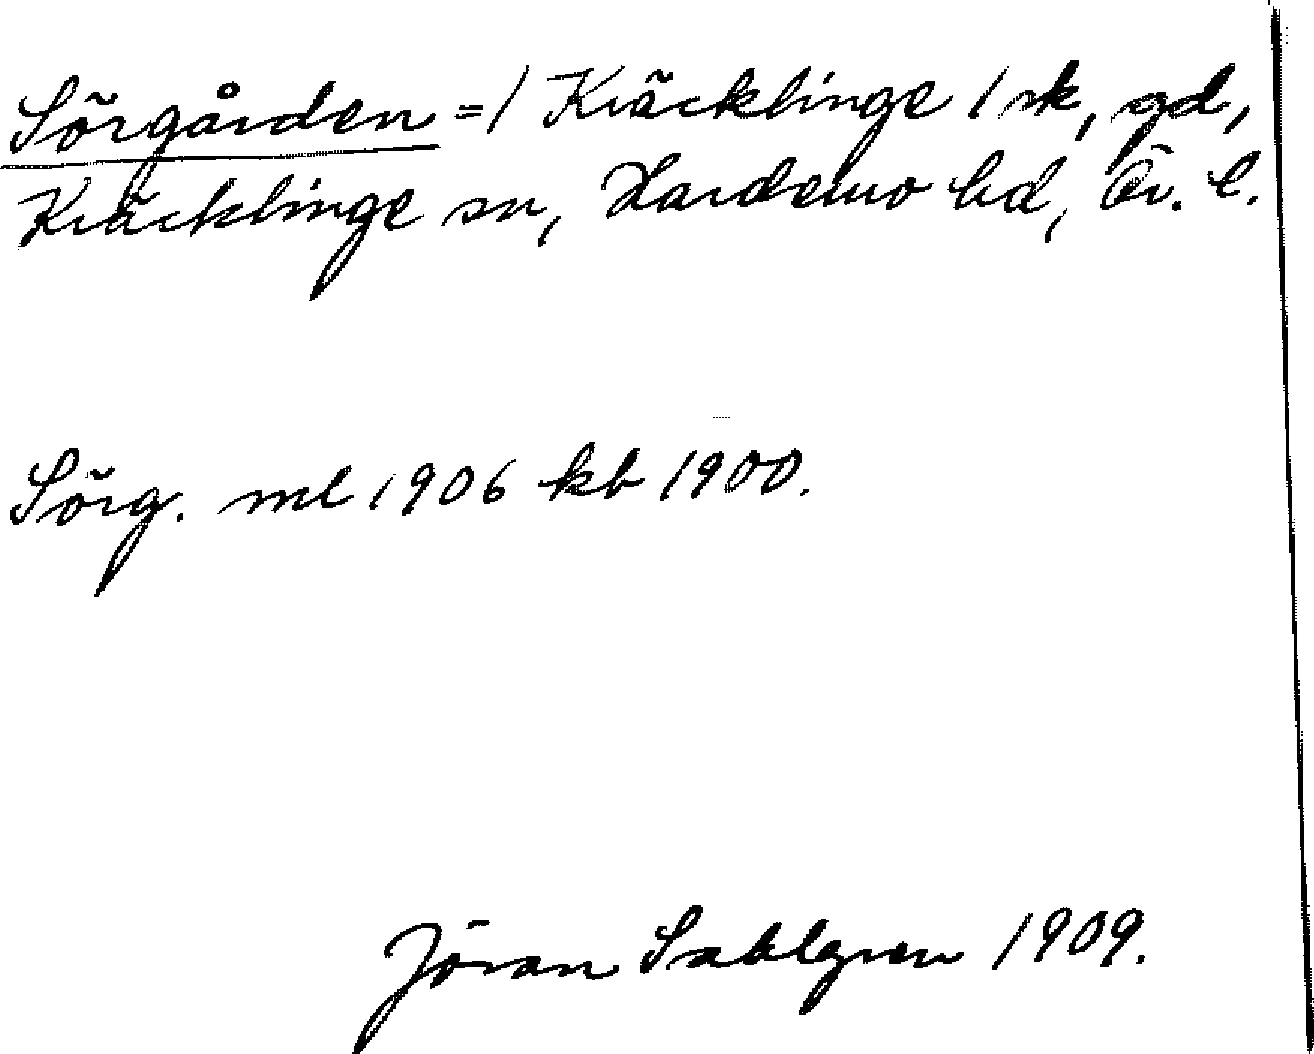 Sörgården = / Kräcklinge / sk, gd,
Kräcklinge sn, Hardemo hd, Ör. l.
Sörg. ml 1906 kb 1900.
Jöran Sahlgren 1909.